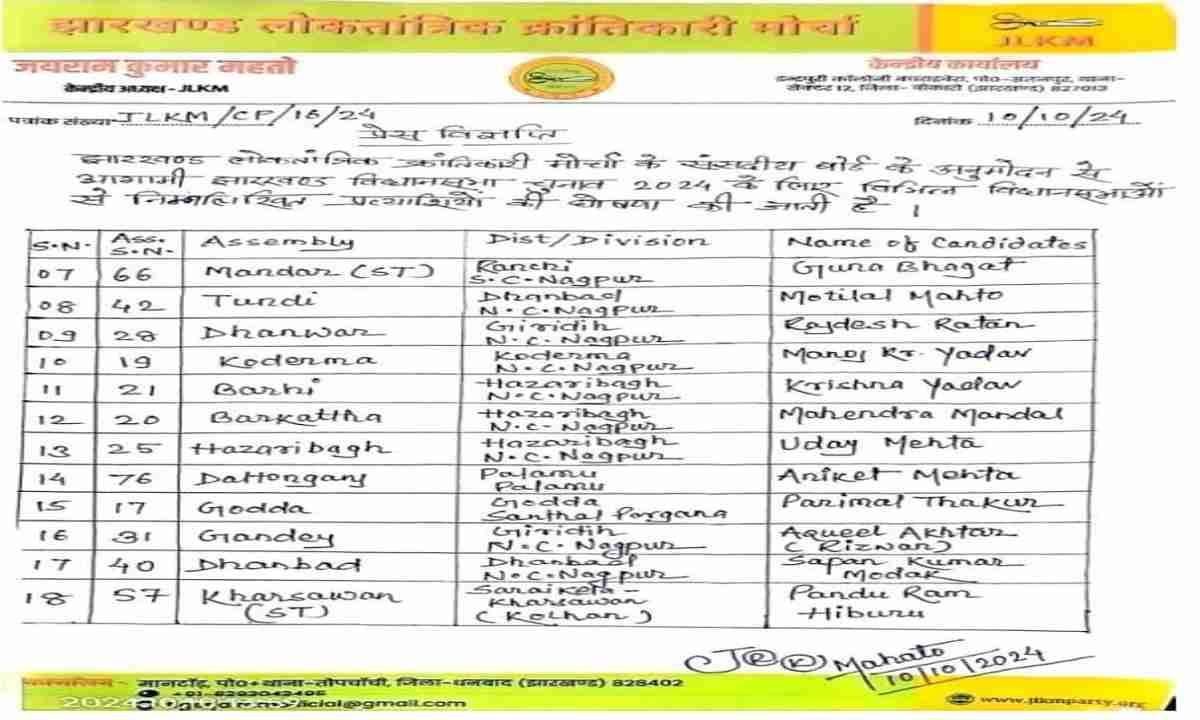 झारखण्ड लोकतांत्रिक क्रांतिकारी मोर्चा
JLKM
जयराम कुमार महतो
केन्द्रीय अध्यक्ष - JLKM
केन्द्रीय कार्यालय
सेक्टर 12, जिला- बोकारो (झारखण्ड) 827013
पत्रांक संख्या- JLKM/CP/16/24
दिनांक 10/10/24
प्रेस विज्ञप्ति
झारखण्ड लोकतांत्रिक क्रांतिकारी मोर्चा के संसदीय बोर्ड के अनुमोदन से
आगामी झारखण्ड विधानसभा चुनाव 2024 के लिए विभिन्न विधानसभाओं
से निम्नलिखित प्रत्याशियों की घोषणा की जाती है ।
S.N. Ass. S.N. Assembly Dist/Division Name of Candidates
07 66 Mandar (ST) Ranchi S.C.Nagpur Guna Bhagat
08 42 Tundi Dhanbad N.C.Nagpur Motilal Mahto
09 28 Dhanwar Giridih N.C.Nagpur Rajdesh Ratan
10 19 Koderma Koderma N.C.Nagpur Manoj Kr. Yadav
11 21 Barhi Hazaribagh N.C.Nagpur Krishna Yadav
12 20 Barkattha Hazaribagh N.C-Nagpur Mahendra Mandal
13 25 Hazaribagh Hazaribagh N.C.Nagpur Uday Mehta
14 76 Daltonganj Palamu Palamu Aniket Mehta
15 17 Godda Godda Santhal Pargana Parimal Thakur
16 31 Gandey Giridih N.C.Nagpur Aqueel Akhtar (Rizwan)
17 40 Dhanbad Dhanbad N.C.Nagpur Sapan Kumar Modak
18 57 Kharsawan (ST) Saraikela- Kharsawan (Kolhan) Pandu Ram Hiburu
Mahato
10/10/2024
मानटाँड़, पो०+थाना-तोपचाँची, जिला-धनबाद (झारखण्ड) 828402
@gmail.com
www.jlkmparty.org